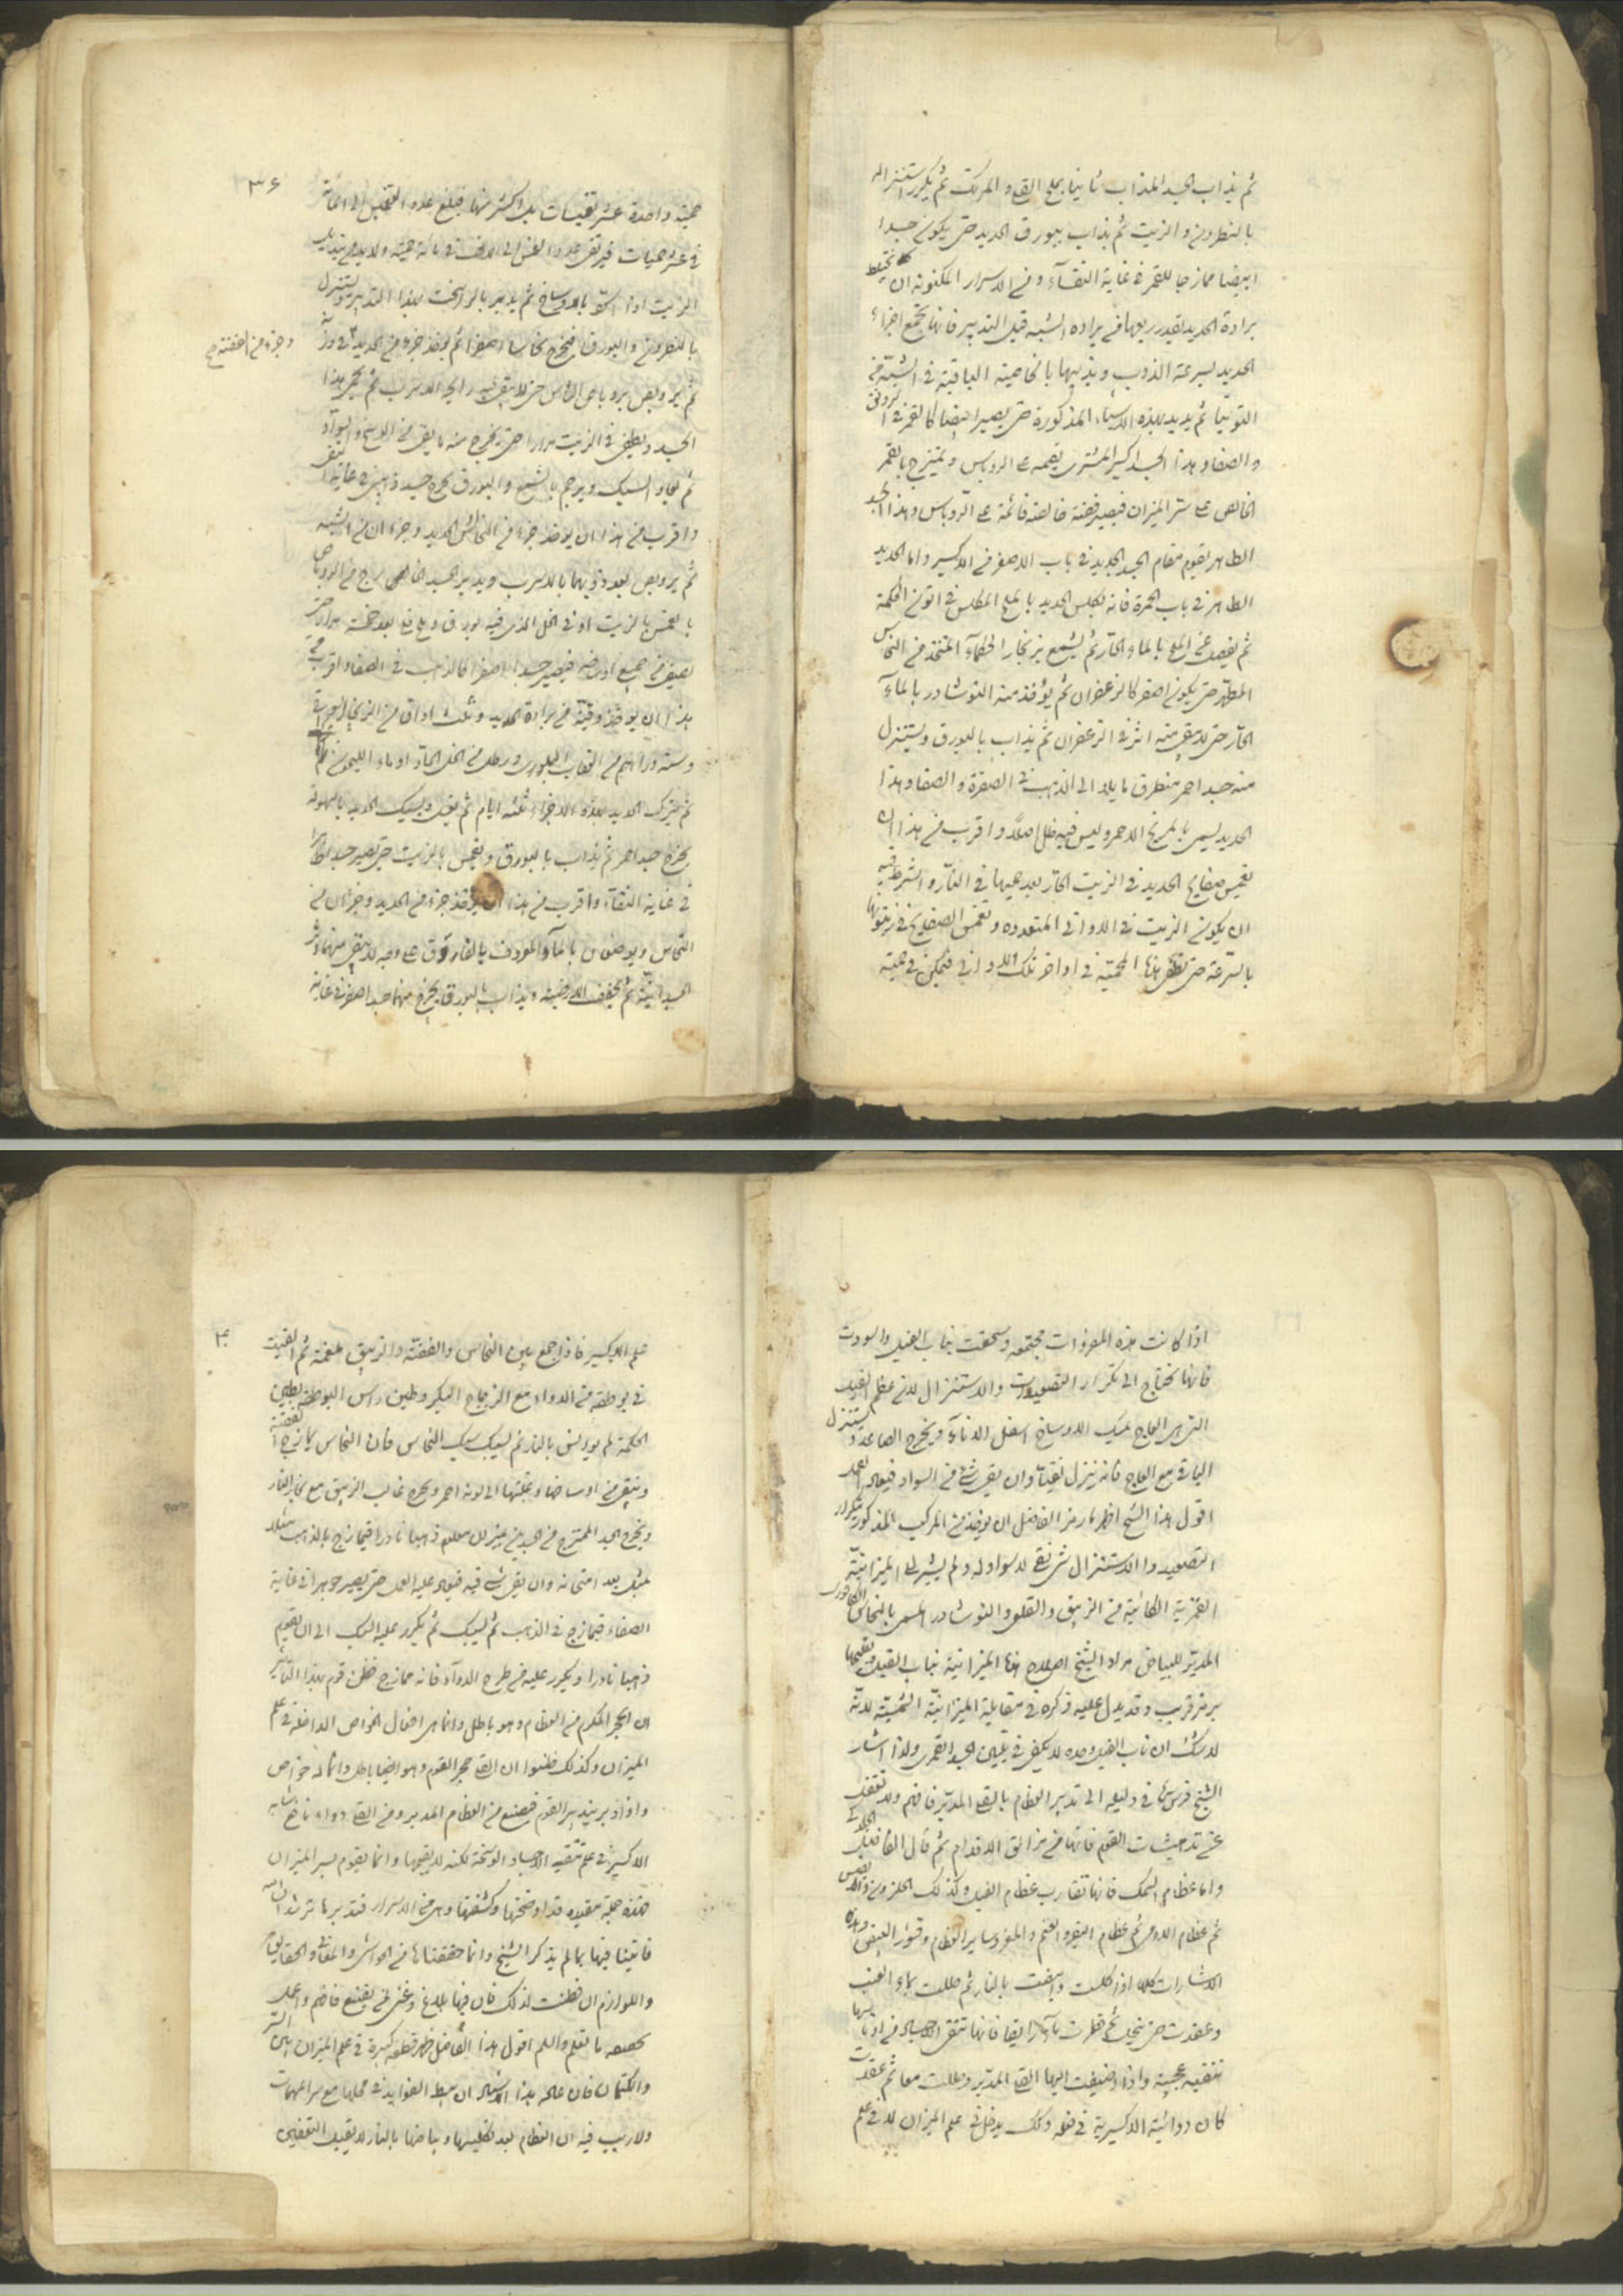 ثم يذاب الجسد المذاب ثانيا بملح القلى و المرتك ثم يكرر استنزاله
بالنطرون و الزيت ثم يذاب ببورق الحديد حتى يكون جسدا
ابيضا ممازجا للقمر فى غاية النقآء و من الاسرار المكنونه ان تختلط
برادة الحديد بقدر ربعها من برادة الشبه قبل التدبير فانها تجمع اجزاء
الحديد بسرعة الذوب و يذيبها بالخاصية الباقية فى الشبه من
التوتيا ثم يدبر بهذه الاشياء المذكورة حتى يصير ابيضا كالقمر فى الرونق
و الصفا و هذا الجسد اكسير المشترى يقيمه على الروباس و يمتزج بالقمر
الخالص على ستر الميزان فيصير فضة خالصة قائمة على الروباس و هذا الجسد
الطاهر يقوم مقام الجسد الجديد فى باب الاصفر من الاكسير و اما الحديد
الطاهر فى باب الحمرة فانه يكلس الحديد بالملح المكلس فى اتون الحكمة
ثم يغسل عن الملح بالماء الحار ثم يشمع بزنجار الحكمآء المتخذ من النحاس
المطهر حتى يكون اصفر كالزعفران ثم يؤخذ منه النوشادر بالمآء
الحار حتى لا يبقى منه اثر فى الزعفران ثم يذاب بالبورق و يستنزل
منه جسد احمر منطرق مايلا الى الذهب فى الصفرة و الصفا و هذا
الحديد يسمى بالمريخ الاحمر و ليس فيه ظل اصلا و اقرب من هذا ان
يغمس صفايح الحديد فى الزيت الحار بعد حميها فى النار و الشرط فيه
ان يكون الزيت فى الاوانى المتعدده و تغمس الصفايح فى زيتونها
بالسرعة حتى تطفى هذه المحمية فى اواخر تلك الاوانى فيمكن فى حمية
٣٦
حمية واحدة عشر تغميسات بل اكثر منها فبلغ عدد التغميس الى المائة
فى عشر حميات فيرتقى عدد الغمس الى الالف فى مائة حمية ولا بد من تبديل
الزيت اذا اتسخ بالاوساخ ثم يدبر بالزرنيخ بهذا التدبير و يستنزل
بالنطرون و البورق فيخرج نحاسا احمرا ثم يؤخذ جزء من الحديد فى وزنه
و جزء من الفضة صح
ثم يروبص بروباص الراس حتى لا يبقى فيه رايحة الاسرب ثم يحمى هذا
الجسد و يطفى فى الزيت مرارا حتى يخرج منه ما بقى من الوسخ و السواد
ثم يعاد السبك و يرجم بالشمع و البورق يخرج جسد ذهبى فى غاية النقى
و اقرب من هذا ان يؤخذ جزء من النحاس الحديد و جزء ان من الشبه
ثم يروبص بعد ذوبهما بالاسرب و يدبر الجسد الخالص
بالغمس بالزيت او فى الخل الذى فيه بورق و ملح قلى بعد حميه مرارا حتى
يصفى من جميع اوساخه فيصير جسدا اصفرا كالذهب فى الصفاء و اقرب من
هذا ان يؤخذ وقية من برادة الحديد و ثلث اواق من الزنجار
و ستة دراهم من العقاب البلورى و رطل من الخل الحاد او ماء الليمون
ثم يترك الحديد بهذه الاجزاء ثلثه ايام ثم يغسل و يسبك الحديد بالسهولة
يخرج جسد احمر ثم يذاب بالبورق و يغمس بالزيت حتى يصير جسدا طاهرا
فى غاية النقآء و اقرب من هذا ان يؤخذ جزء من الحديد و جزءان من
النحاس و يوضعان بالمآء المعروف بالفاروق على وجه لا يبقى منهما اثر
الجسدانية ثم يجفف الارضية و يذاب بالبورق يخرج منهما جسد اصفر فى غاية
اذا كانت هذه المعرفات مجتمعه و سحقت بناب الفيل و اسودت
فانها تحتاج الى تكرار التصعيدات و الاستنزال لان عظم الفيل
الذى هو العاج يمسك الاوساخ اسفل الاناء و يخرج الصاعد و يستنزل
الباقى مع العاج فانه ينزل نقيا و ان بقى شئ من السواد فيعاد العمل
اقول هذا الشيخ اظهر ما رمز الفاضل ان يؤخذ من المركب المذكور بتكرار
التصعيد و الاستنزال شئ نقى لا سواد له و لم يشير الى الميزانية
القمرية الكائنة من الزيبق و القلعى و النوشادر الممسى بالنحاس
المدبر للبياض مراد الشيخ اصلاح هذه الميزانية بناب الفيل و تقليبها
برمز قريب و قد يدل عليه ذكره فى مقابلة الميزانية الشمسية لانه
لا شك ان ناب الفيل وحده لا يكفى فى تليين الجسد القمرى و لذا اشار
الشيخ قدس سره فى دليله الى تدبير العظام بالقلى المدبر فافهم و لا تغفل
عن تدخيشات القوم فانها من مزالق الاقدام ثم قال الفاضل الجلدكى
و اما عظام السمك فانها تقارب عظام الفيل و كذلك الحلزون و الاصداف
ثم عظام الاوز ثم عظام البقر و الغنم و المعز و ساير العظام و قشور البيض و هذه
الاشارات كلها اذا كلست و ابيضت بالنار ثم حللت بماء العنب
و عقدت حتى تنحل ثم قطرت مآء رايقا فانها تنقى الاجساد من ادناسها
تنقيه عجيبة و اذا اضيفت اليها القلى المدبر و حللت معا ثم عقدت
كان دوائية الاكسيرية فى فعله و لكن يدخل فى علم الميزان لا فى علم
٤٠
علم الاكسير فاذا جمع بين النحاس و الفضة و الزيبق ملغمة ثم القيت
فى بوطقة من الدواء مع الزجاج المبكر و طين راس البوطقة بطين
الحكمة ثم يوانس بالنار ثم يسبك سبك النحاس فان النحاس يمازج الفضة
و ينقى من اوساخها و يقلبها الى لونه احمر و يخرج غالب الزيبق مع بخار النار
و يخرج الجسد الممتزج من الجسدين بميزان معلوم ذهبا نادرا فيمازج بالذهب مثلا
بمثل بعد امتحانه و ان بقى شئ فيه فيعاد عليه العمل حتى يصير جوهرا فى غاية
الصفاء فيمازج فى الذهب ثم يسبك ثم يكرر عليه السبك الى ان يقوم
ذهبا نادرا و يكرر عليه من طرح الدوآء فانه ممازج فظن قوم بهذا التاثير
ان الحجر المكرم من العظام و هو باطل و انما هى افعال الخواص الداخلة فى علم
الميزان و كذلك ظنوا ان القلى حجر القوم و هو ايضا باطل و انما له خواص
و اذا دبر بتدبير القوم فيصنع من العظام المدبر و من القلى دواء نافع يشابه
الاكسير فى علم تنقيه الاجساد الوسخة لكنه لا يقيمها و انما يقوم بسر الميزان
هذه جملة مفيده قد اوضحتها و كشفتها و هى من الاسرار فتدبرها ترشد ان شاء الله
فاتينا فيها بما لم يذكر الشيخ و انما حققناها من الحواشى و المعانى و الحقايق
و اللوازم ان فطنت لذلك فان فيها بلاغ و غنى لمن يقنع فافهم و اعمل
بحسبه ما تعلم و السلم اقول هذا الفاضل ظهر قطعة كبيرة فى علم الميزان الى الستر
و الكتمان فان عادة هذا الاستاد ان يبسط الفوايد فى محلها مع مراعيهمات
و لا ريب فيه ان العظام بعد تكليسها و بياضها بالنار لا يقبل التعفين